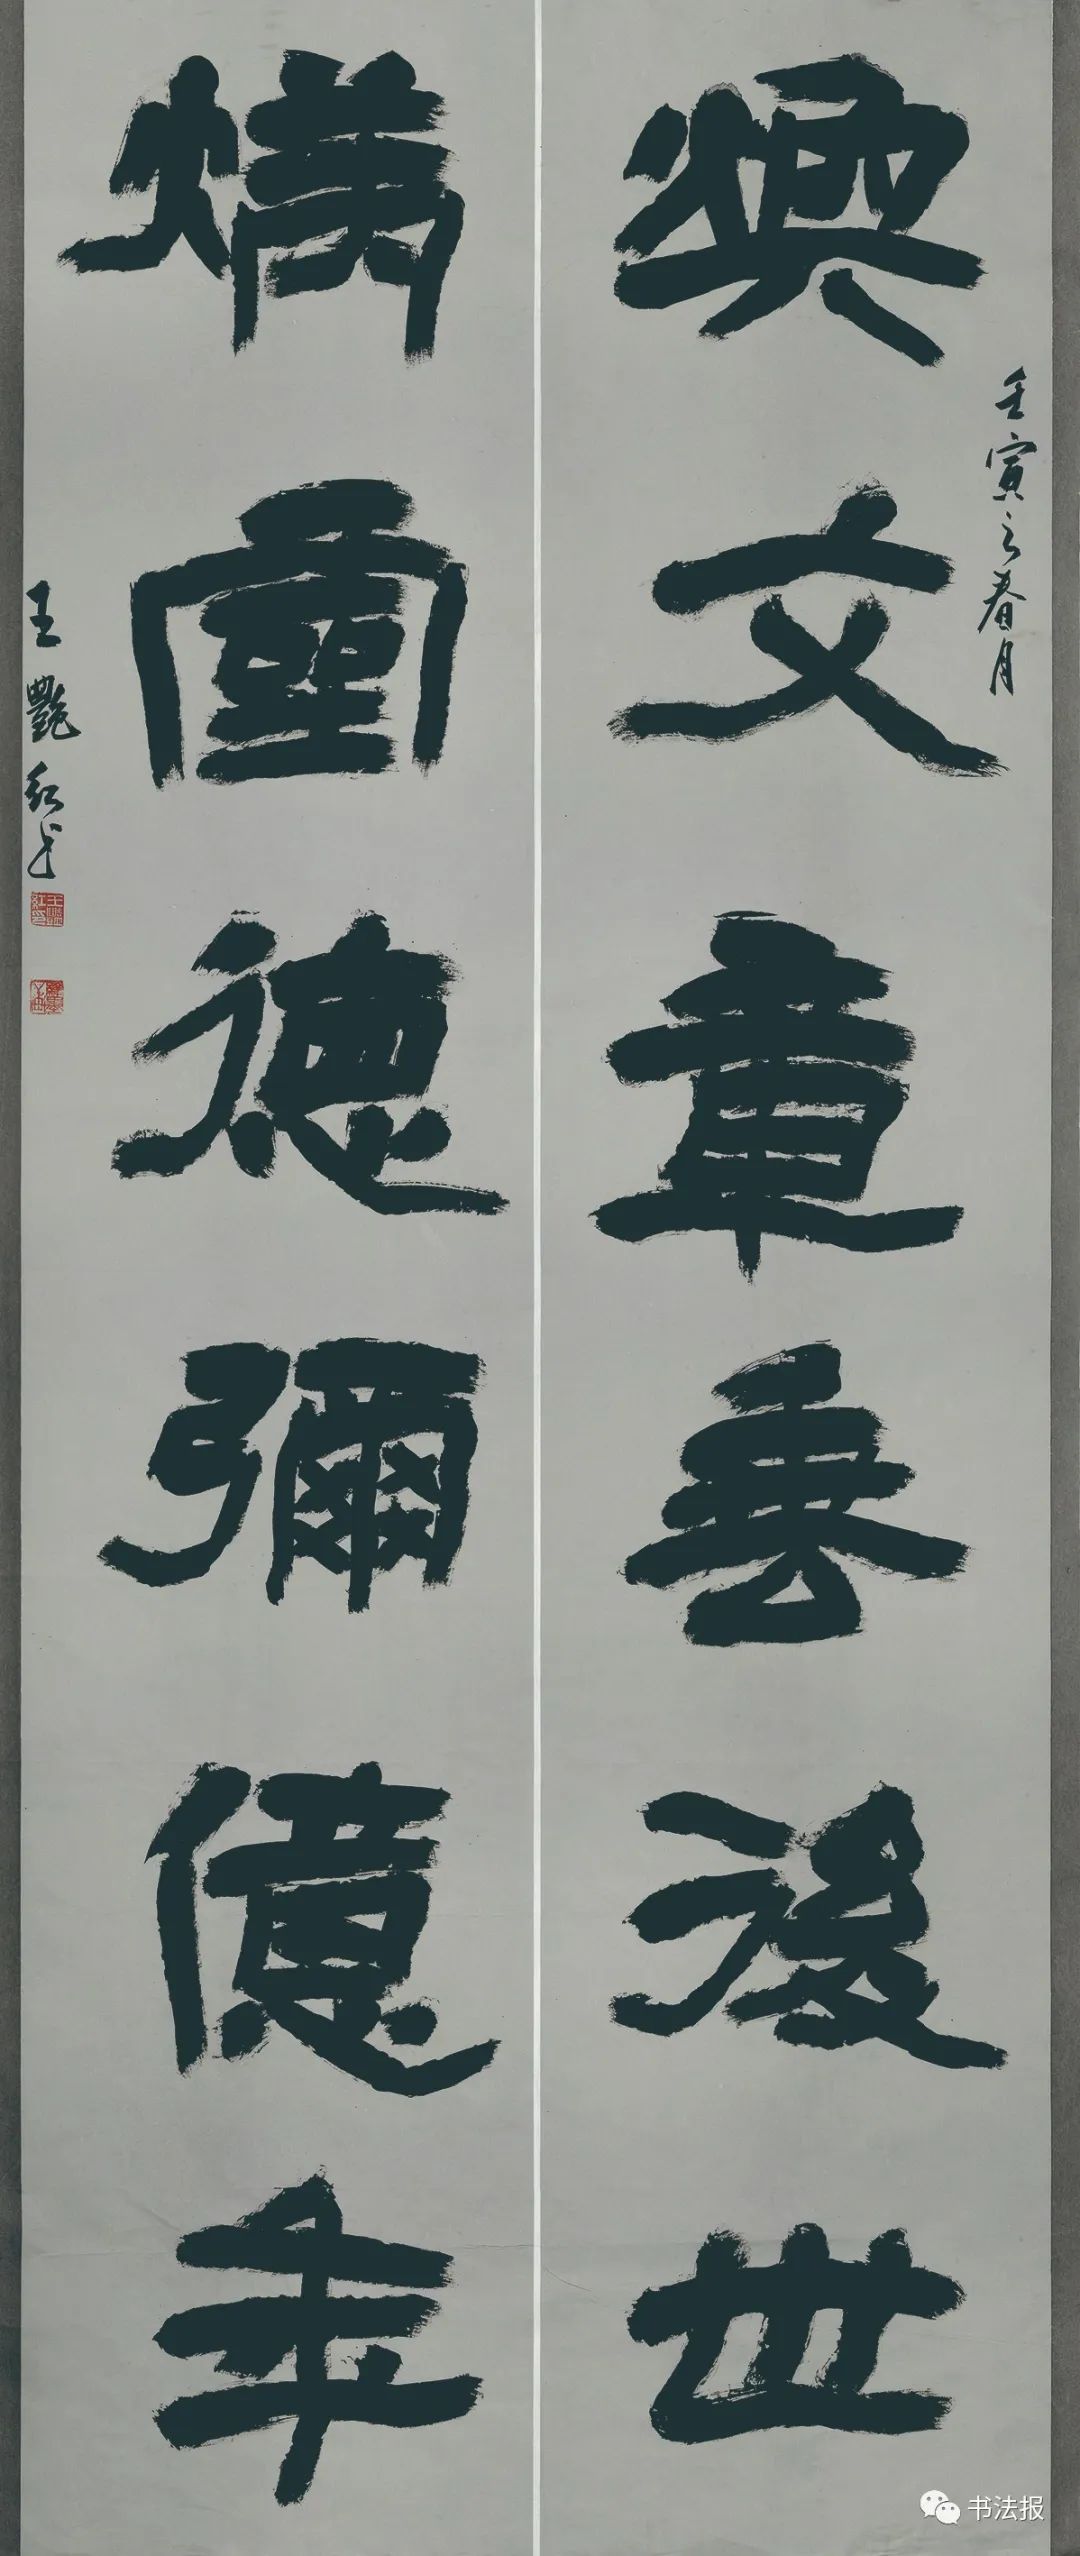 壬寅之春月
煥文章垂後世
德彌億年
王艷紅书
书法报